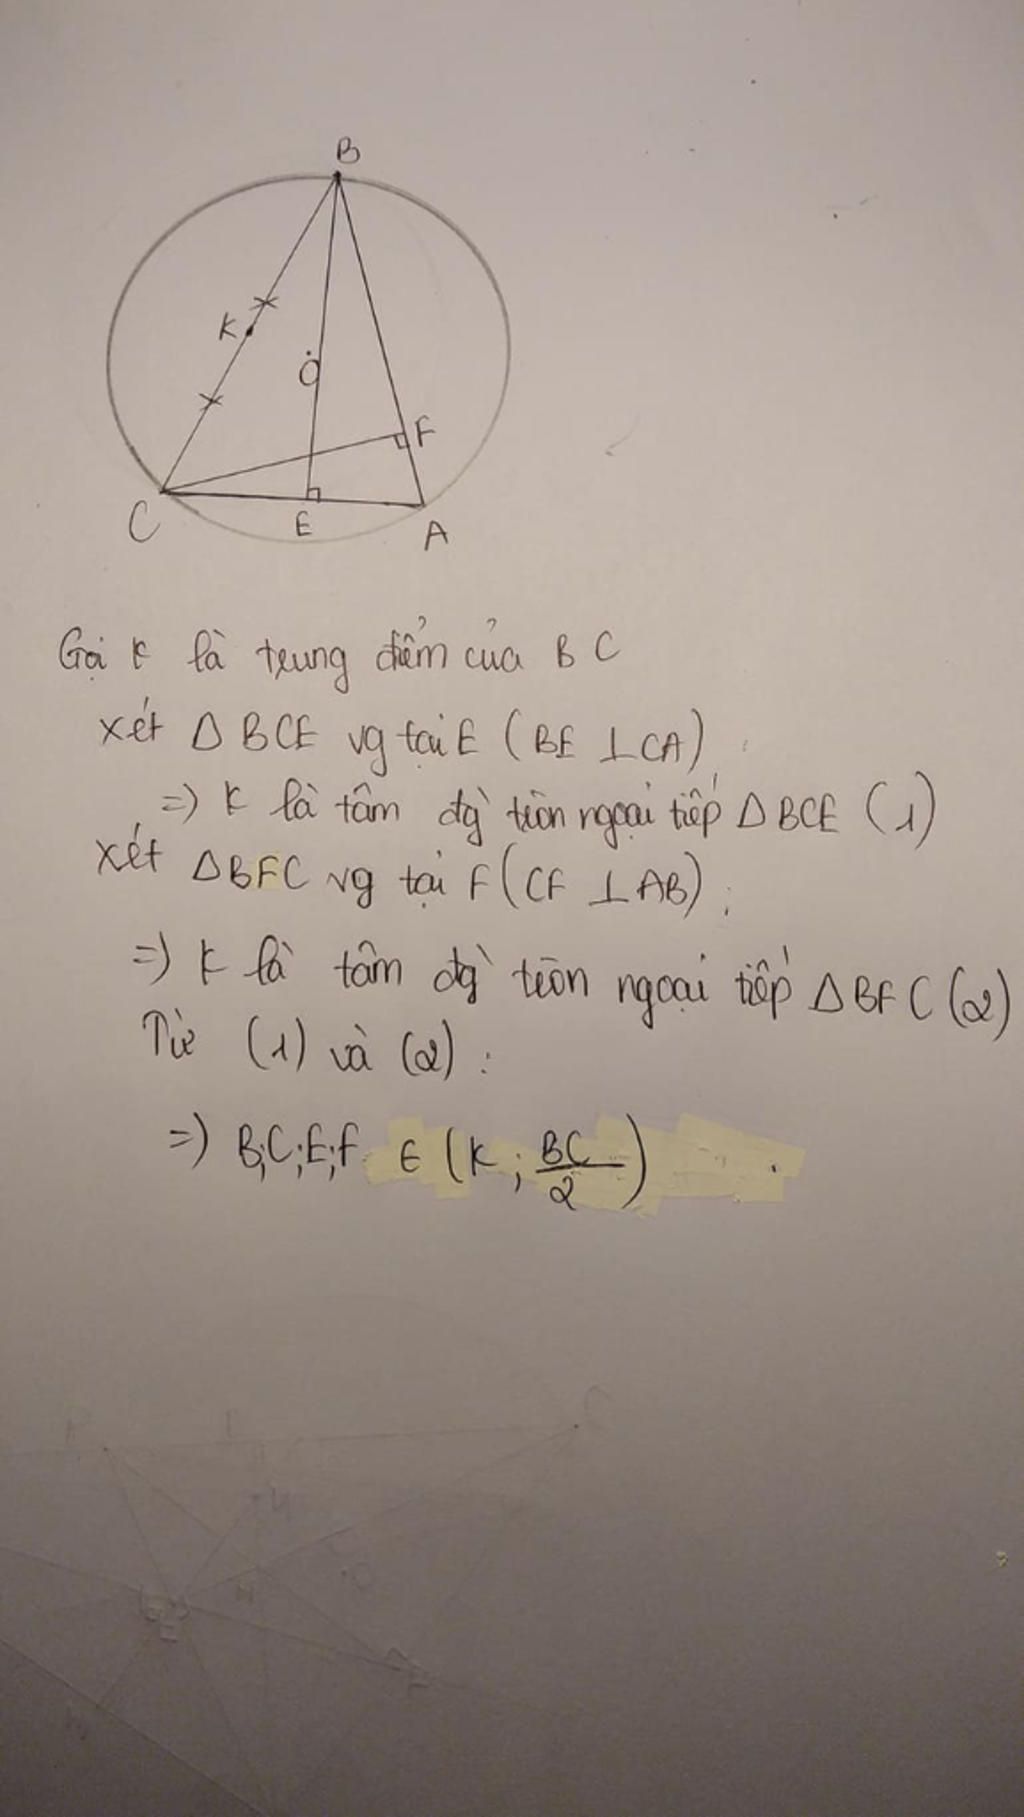 B
K
O
F
C
E
A
Gọi K là trung điểm của BC
xét Δ BCE vg tại E ( BE ⊥ CA )
=) K là tâm đg` tròn ngoại tiếp Δ BCE (1)
xét Δ BFC vg tại F ( CF ⊥ AB ) ;
=) K là tâm đg` tròn ngoại tiếp Δ BFC (2)
Từ (1) và (2) :
=) B;C;E;F ∈ (K ; BC/2) .